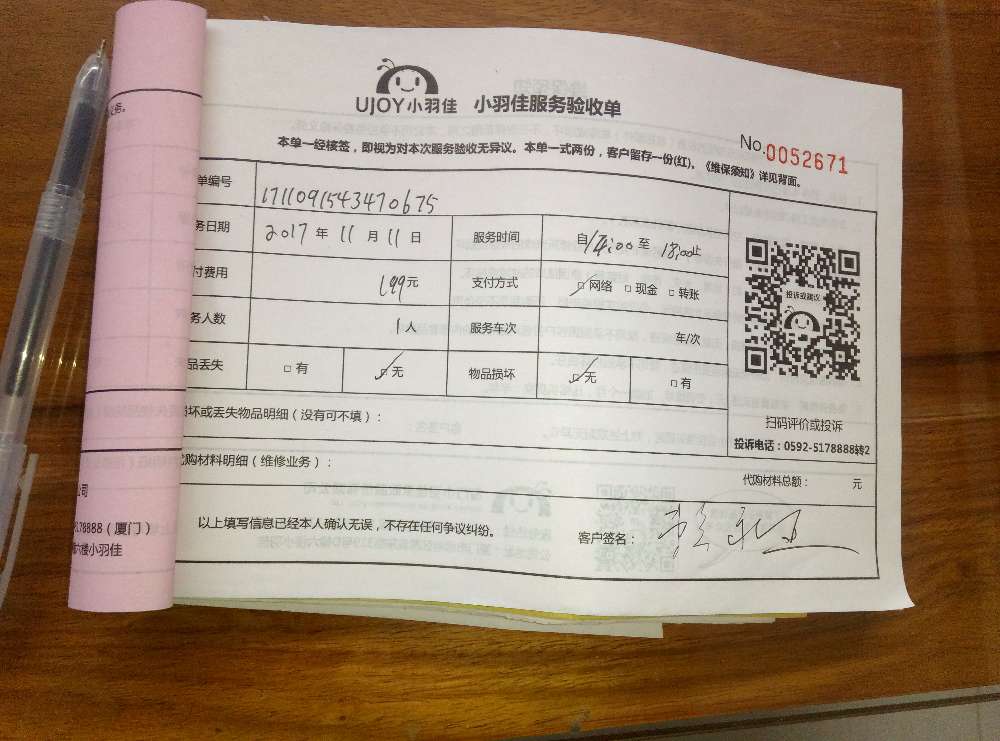 UJOY小羽佳 小羽佳服务验收单
No.0052671
本单一经核签，即视为对本次服务验收无异议。本单一式两份，客户留存一份(红)。《维保须知》详见背面。
单编号 1711091543470675
务日期 2017 年 11 月 11 日 服务时间 自14:00至 18:00止
付费用 199元 支付方式 □网络 □现金 □转账
务人数 1人 服务车次 车/次
品丢失 □有 □无 物品损坏 □无 □有
投诉或建议
扫码评价或投诉
投诉电话：0592-5178888转2
损坏或丢失物品明细（没有可不填）：
代购材料明细（维修业务）：
代购材料总额： 元
以上填写信息已经本人确认无误，不存在任何争议纠纷。
客户签名：
务。
公司
5178888（厦门）
六楼小羽佳